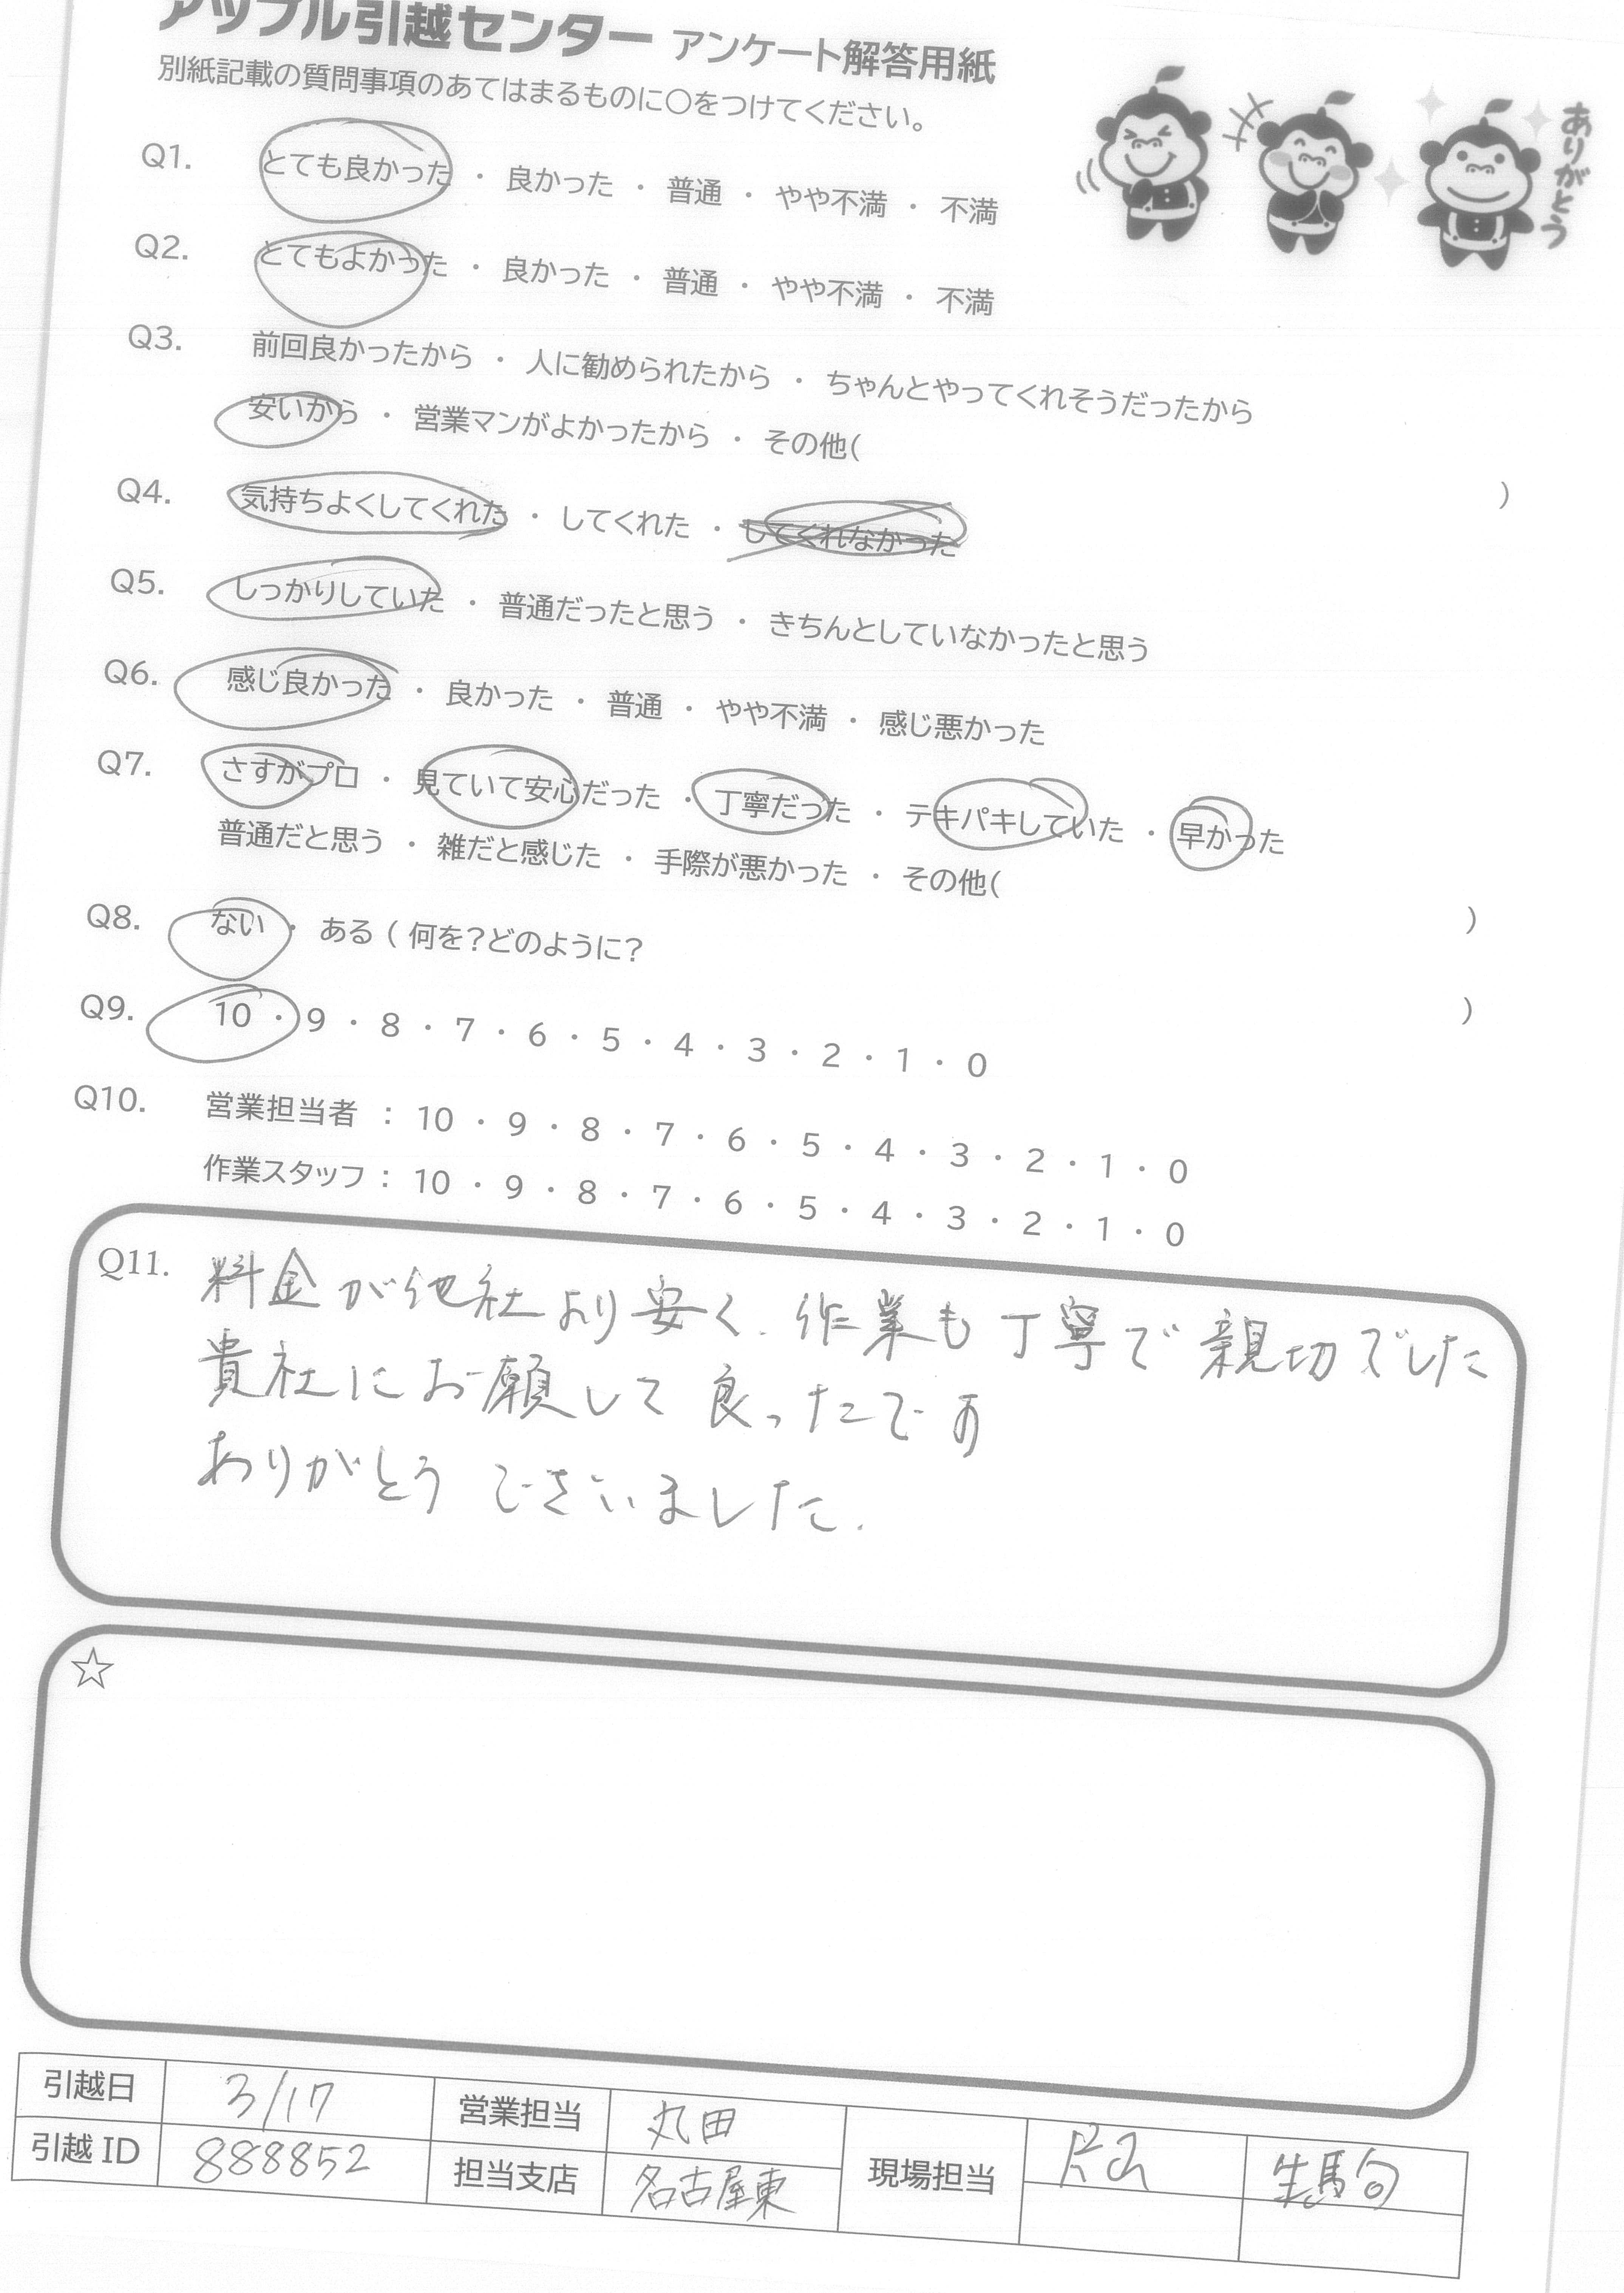 アップル引越センター アンケート解答用紙
別紙記載の質問事項のあてはまるものに〇をつけてください。
ありがとう
Q1. とても良かった ・ 良かった ・ 普通 ・ やや不満 ・ 不満
Q2. とてもよかった ・ 良かった ・ 普通 ・ やや不満 ・ 不満
Q3. 前回良かったから ・ 人に勧められたから ・ ちゃんとやってくれそうだったから
安いから ・ 営業マンがよかったから ・ その他( )
Q4. 気持ちよくしてくれた ・ してくれた ・ してくれなかった
Q5. しっかりしていた ・ 普通だったと思う ・ きちんとしていなかったと思う
Q6. 感じ良かった ・ 良かった ・ 普通 ・ やや不満 ・ 感じ悪かった
Q7. さすがプロ ・ 見ていて安心だった ・ 丁寧だった ・ テキパキしていた ・ 早かった
普通だと思う ・ 雑だと感じた ・ 手際が悪かった ・ その他( )
Q8. ない ・ ある ( 何を?どのように? )
Q9. 10 ・ 9 ・ 8 ・ 7 ・ 6 ・ 5 ・ 4 ・ 3 ・ 2 ・ 1 ・ 0
Q10. 営業担当者 : 10 ・ 9 ・ 8 ・ 7 ・ 6 ・ 5 ・ 4 ・ 3 ・ 2 ・ 1 ・ 0
作業スタッフ : 10 ・ 9 ・ 8 ・ 7 ・ 6 ・ 5 ・ 4 ・ 3 ・ 2 ・ 1 ・ 0
Q11. 料金が他社より安く. 作業も丁寧で親切でした
貴社にお願して良ったです
ありがとうございました.
☆
引越日 3/17 営業担当 丸田
引越 ID 888852 担当支店 名古屋東 現場担当 生馬句